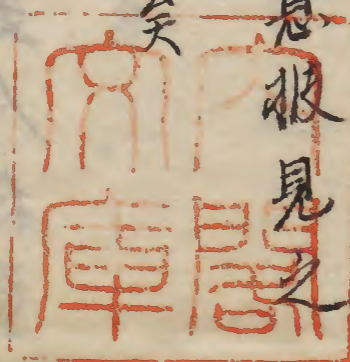 披見之
矣
内閣
文庫